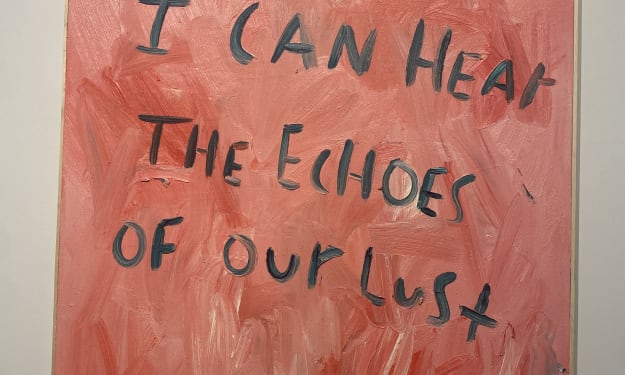 I CAN HEAr
THE ECHOES
OF OUr LuSt